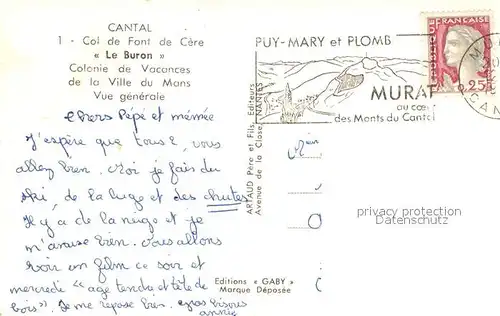 CANTAL
1 - Col de Font de Cère
« Le Buron »
Colonie de Vacances
de la Ville du Mans
Vue générale
chers Pépé et mémée
J'espère que tous 2, vous
allez bien. Moi je fais du
ski, de la luge et des chutes
Il y a de la neige et je
m'amuse bien. Vous allons
voir un film ce soir et
mercredi "age tendre et tête de
bois". Je me repose bien. gros bisous
annie
ARTAUD Père et Fils, Editeurs
Avenue de la Close, NANTES
Editions « GABY »
Marque Déposée
PUY-MARY et PLOMB
MURAT
au cœur
des Monts du Cantal
FRANÇAISE
0,25
CAN
privacy protection
Datenschutz